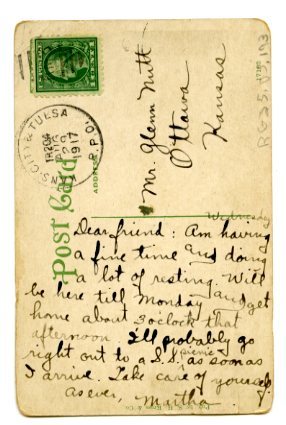 KANS. CITY & TULSA
AUG 29
1917
R.P.O.
Post Card
ADDRESS
Mr. Glenn Nutt
Ottawa
Kansas
Wednesday
Dear friend: Am having
a fine time and doing
a lot of resting. Will
be here till Monday and get
home about 3 oclock that
afternoon I'll probably go
right out to a S.S. picnic as soon as
I arrive. Take care of yourself.
as ever, Martha